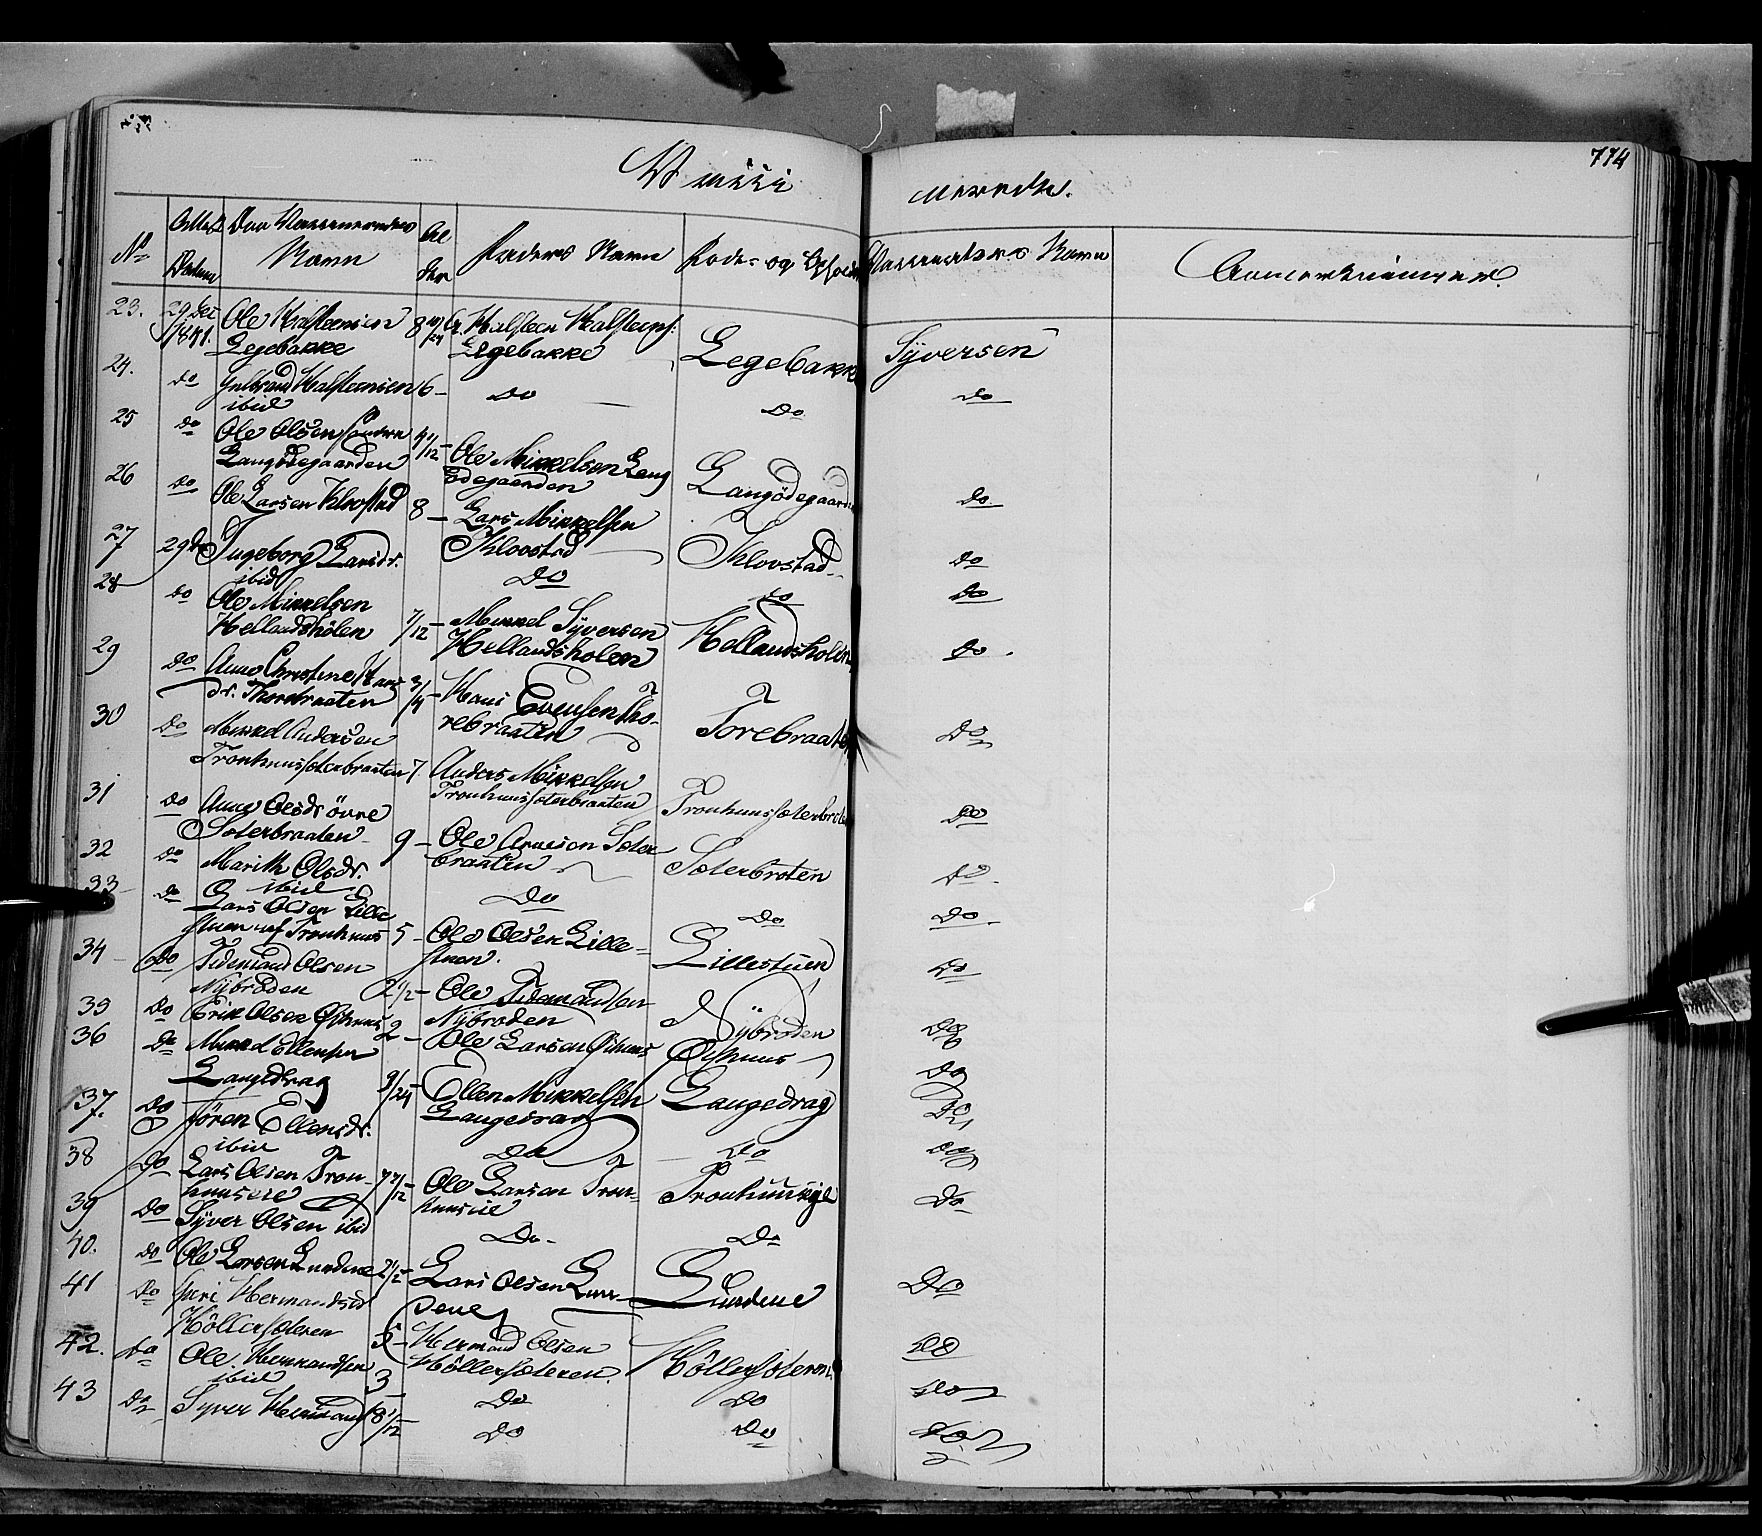 774
Vacci nerede.
No
Attest Datum
Den Vaccineredes Navn
Al der
Faders Navn
Føde- og Opholds
Vaccinateurs Navn
Anmærkninger.
23. 29 Dec 1841. Ole Halsteensen Legebakke 8 Halsteen Halsteens: Legebakke Legebakke Syversen
24. do Gulbrand Halsteensen ibid 6 - Do Do do
25 do Ole Olsen Søndre Langødegaarden 4 1/12 - Ole Mikkelsen Lang ødegaarden Langødegaarden do
26 do Ole Larsen Klovstad 8 - Lars Mikkelsen Klovstad Klovstad do
27 29 do Ingeborg Larsdr. ibid Do do do
28 do Ole Mikkelsen Hellandshølen 7/12 - Mikkel Syversen Hellandsholen Hellandsholen do
29 do Anne Christine Hans dr. Thorebraaten 3/4 - Hans Evensen Tho- rebraaten Torebraaten Do
30 do Mikkel Andersen Tronhuussæterbraaten 7. Anders Mikkelsen Tronhuussæterbraaten Tronhuussæterbroten Do
31 do Anne Olsdr øvre Sæterbraaten 9 - Ole Arnesen Sæter braaten Sæterbroten do
32 do Marith Olsdr. ibid Do Do do
33 do Lars Olsen Lille stuen af Tronhuus 5 - Ole Olsen Lille- stuen. Lillestuen do
34 do Tidemand Olsen Nÿbroden 2 1/2 - Ole Tidemandsen Nÿbroden Nÿbroden do
35 do Erik Olsen Øihuus 2 - Ole Larsen Øihuus Øihuus do
36 do Mikkel Ellensen Langedrag 9/24 - Ellen Mikkelsen Langedrag Langedrag do
37. do Jøren Ellensdr. ibid Do Do do
38 do Lars Olsen Tron- huuseie 7 7/12 - Ole Larsen Tron- huuseie Tronhuuseje do
39 do Sÿver Olsen ibid Do - Do
40. do Ole Larsen Lundene 2 1/2 - Lars Olsen Lun- dene Lundene Do
41 do Juri Hermandsdr Höllersæteren 5 - Hermand Olsen Höllersæteren. Höllersæteren do
42. do Ole Hermandsen ibid 3 Do Do do
43 do Syver Hermands 8 1/12 - Do Do do